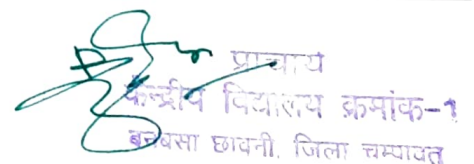 प्राचार्य
केन्द्रीय विद्यालय क्रमांक-1
बनबसा छावनी, जिला चम्पावत